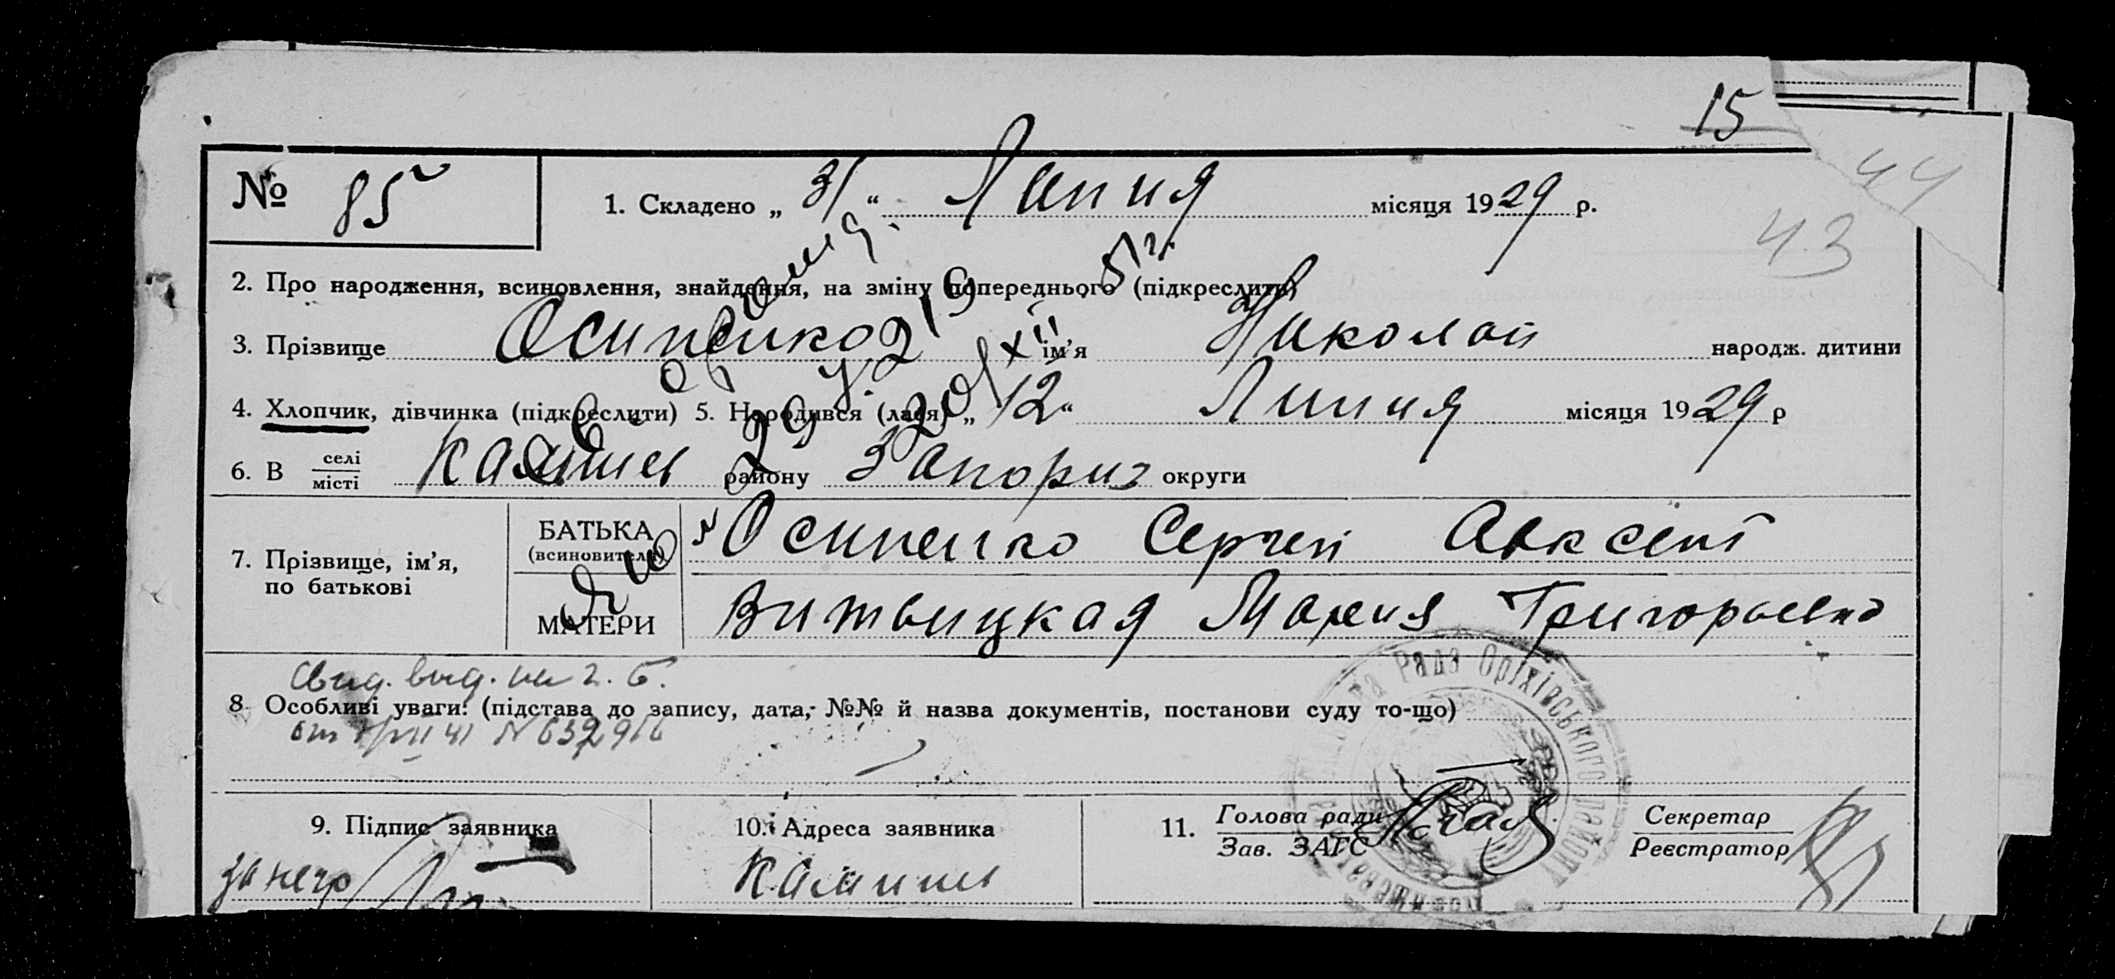 15
44
№ 85
1. Складено „ 31 “ Липня місяця 1929 р.
43
2. Про народження, всиновлення, знайдення, на зміну попереднього (підкреслити)
3. Прізвище Осипенко ім’я Николай народж. дитини
4. Хлопчик, дівчинка (підкреслити) 5. Народився (лася) „ 12 “ Липня місяця 1929 р
6. В селі місті Камиш району Запориз округи
7. Прізвище, ім’я, по батькові
БАТЬКА (всиновителя) Осипенко Сергей Авксент
МАТЕРИ Витвицкая Мария Григорьевна
Свид. выд. на г. б.
8 Особливі уваги: (підстава до запису, дата, №№ й назва документів, постанови суду то-що)
от VII 41 N 632916
Рада Оріхівського району
9. Підпис заявника
10. Адреса заявника
11. Голова ради Зав. ЗАГС
Секретар Реєстратор
за него